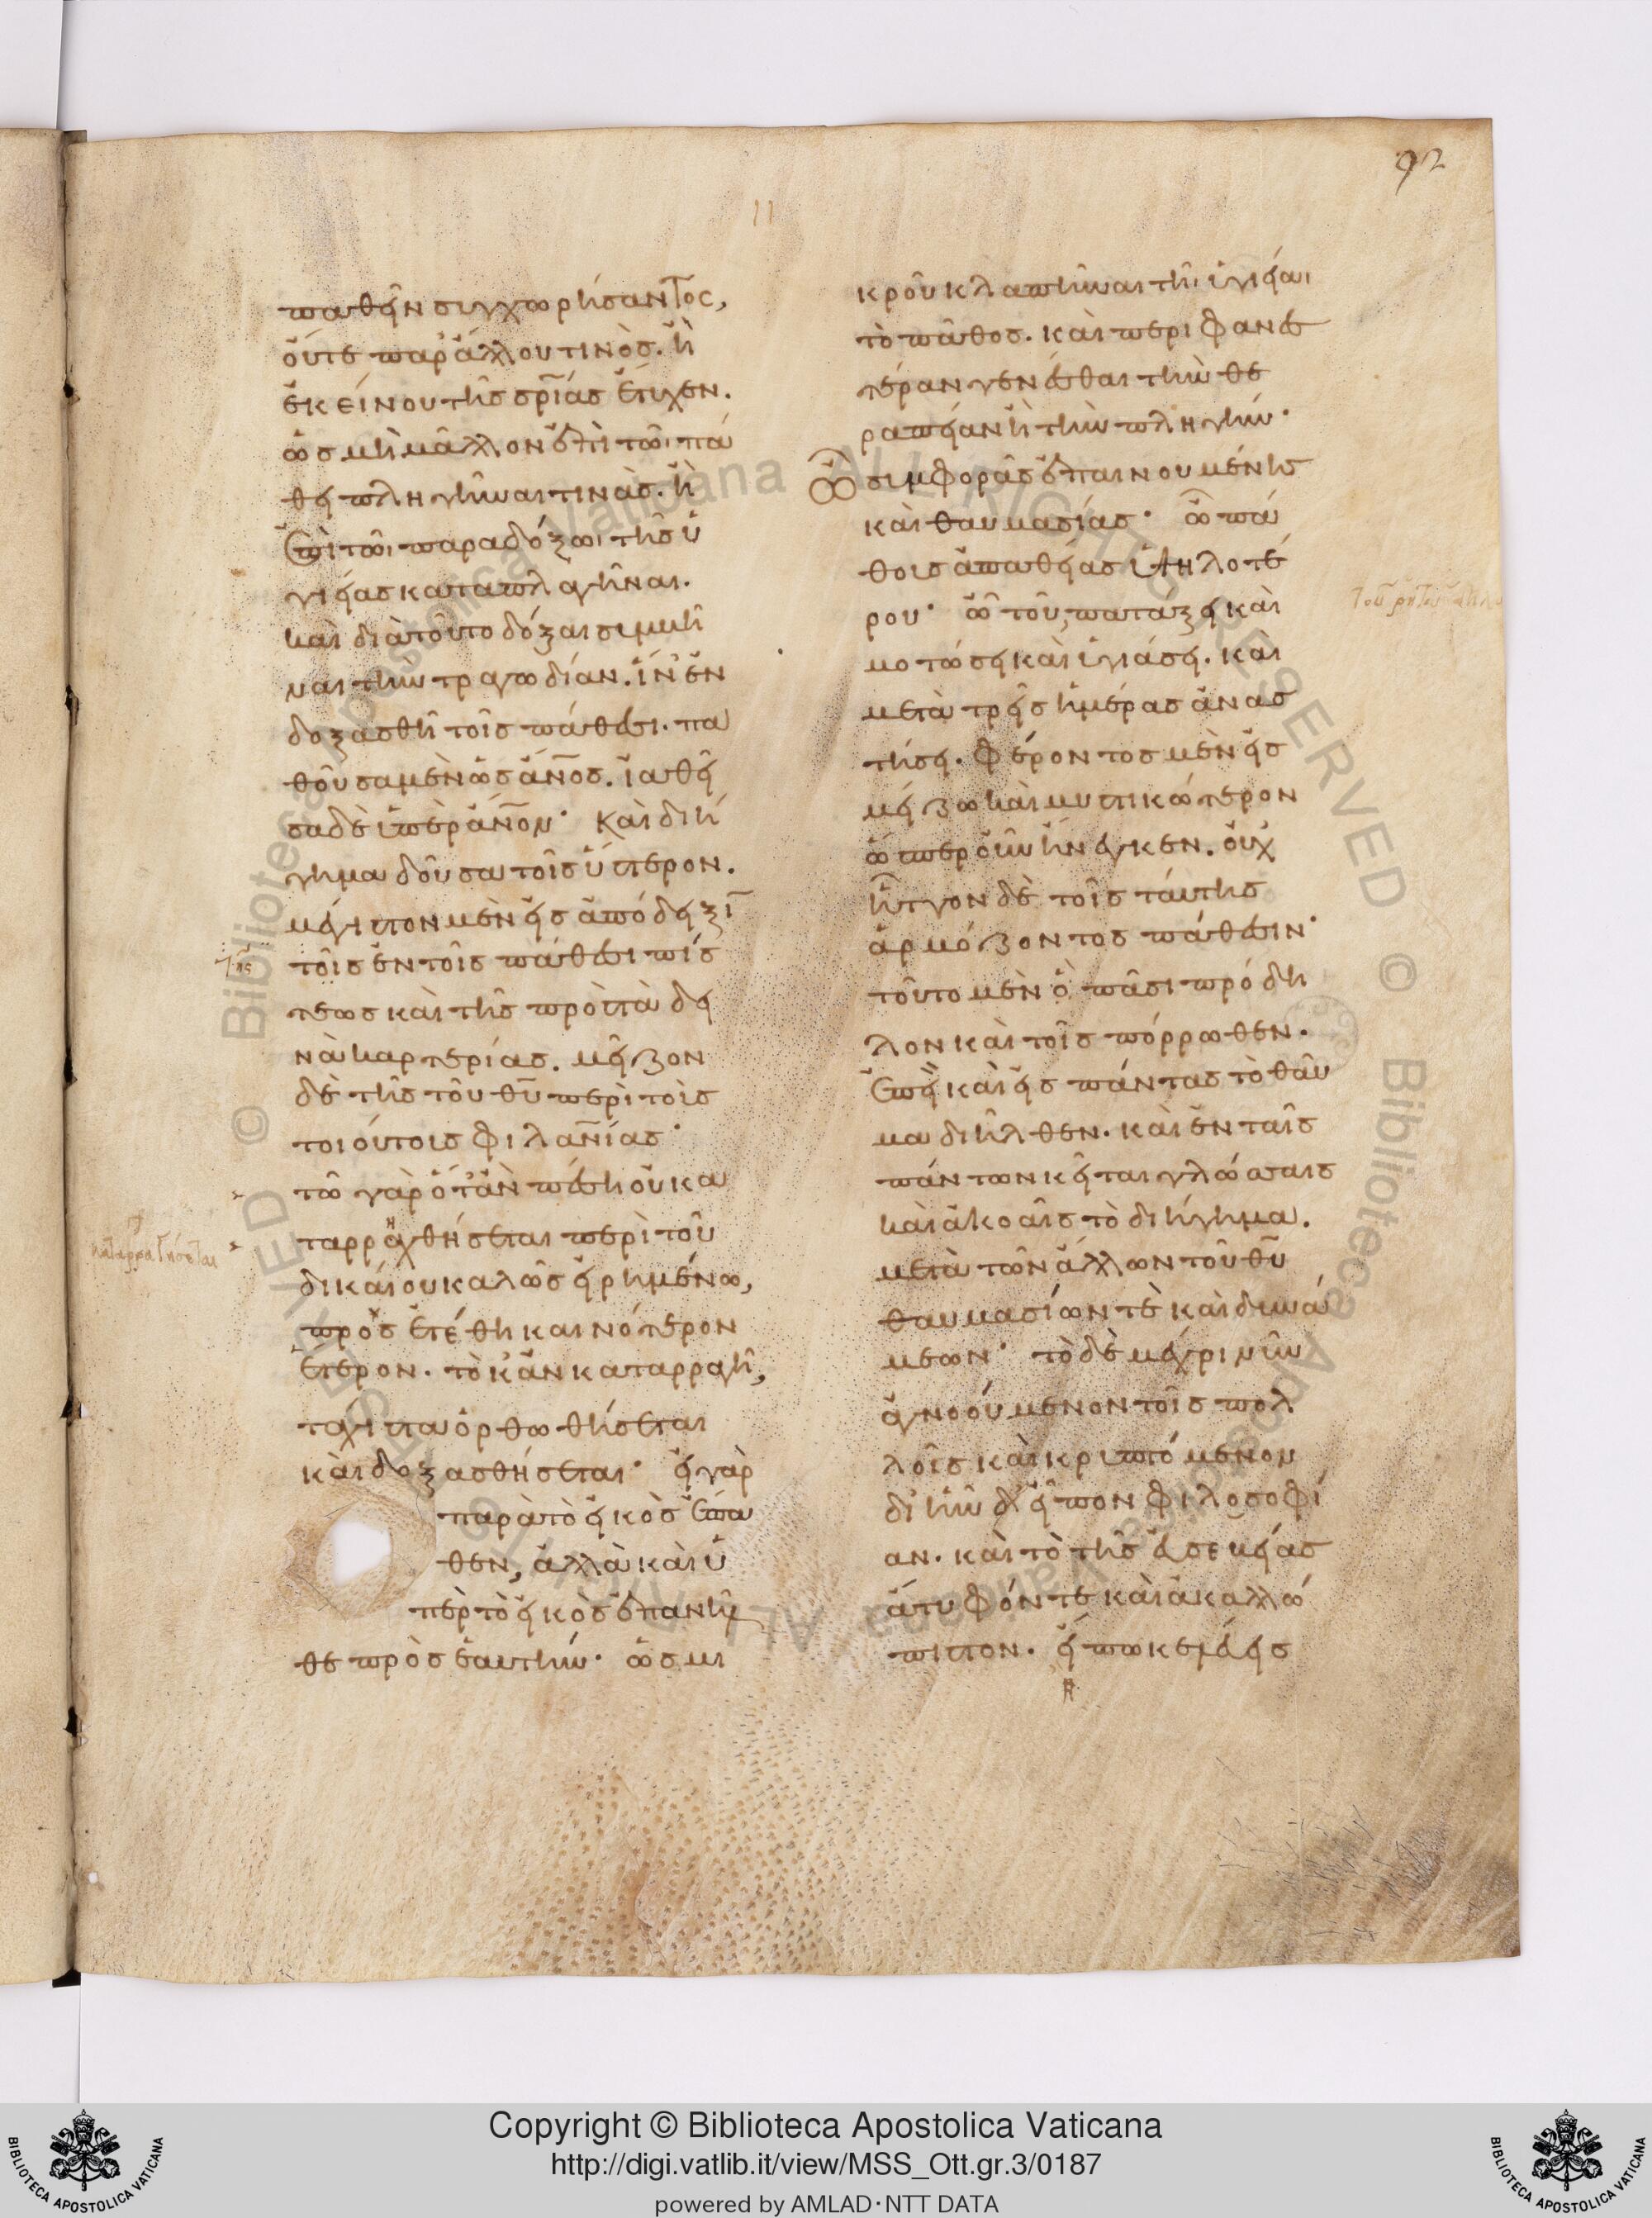 92
11
παθεῖν συγχωρήσαντος,
οὔτε παρ' ἄλλου τινὸς. ἢ
ἐκείνου τῆς σρ̅ίας ἔτυχεν.
ὡς μὴ μᾶλλον ἐπὶ τῶι πά
θει πληγῆναι τινὰς. ἢ
ἐπὶ τῶι παραδόξωι τῆς ὑ
γιείας καταπλαγῆναι.
καὶ διατοῦτο δόξαι συμβῆ
ναι τὴν τραγωδίαν. ἵν' ἐν
δοξασθῆ τοῖς πάθεσι. πα
θοῦσα μὲν ὡς ἄν̅ος. ἰαθεῖ
σα δὲ ὑπὲρ ἄν̅ον· καὶ διή
γημα δοῦσα τοῖς ὕστερον.
μέγιστον μὲν εἰς ἀπόδειξι̅
τῆς
τοῖς ἐν τοῖς πάθεσι πίσ
τεως καὶ τῆς πρὸς τὰ δει
νὰ καρτερίας. μεῖζον
δὲ τῆς τοῦ θυ̅ περὶ τοὺς
τοιούτοις φιλαν̅ίας·
τῶ γὰρ ὅταν πέση οὐ κα
ταρραχθήσεται περὶ τοῦ
καταρραγήσεται
δικαίου καλῶς εἰρημένω,
προσετέθη καινότερον
ἕτερον. τὸ κἂν καταρραγῆ,
τάχιστα ὀρθωθήσεται
καὶ δοξασθήσεται· εἰ γὰρ
παρὰ τὸ εἰκὸς ἔπα
θεν, ἀλλὰ καὶ ὑ
πὲρ τὸ εἰκὸς ἐπανῆλ
θε πρὸς ἑαυτήν· ὡς μι
κροῦ κλαπῆναι τῆι ὑγιείαι
τὸ πάθος. καὶ περιφανεσ
τέραν γενέσθαι τὴν θε
ραπείαν ἢ τὴν πληγήν·
ὢ συμφορᾶς ἐπαινουμένης
καὶ θαυμασίας· ὢ πά
θους ἀπαθείας ὑψηλοτέ
ρου· ὢ τοῦ, πατάξει καὶ
μοτώσει καὶ ὑγιάσει. καὶ
μετὰ τρεῖς ἡμέρας ἀνασ
τήσει. φέροντος μὲν εἰς
μείζω καὶ μυστικώτερον
ὥσπερ οὖν ἤνεγκεν. οὐχ
ἧττον δὲ τοῖς ταύτης
ἁρμόζοντος πάθεσιν·
τοῦτο μὲν ὃ πᾶσι πρόδη
λον καὶ τοῖς πόρρωθεν.
ἐπεὶ καὶ εἰς πάντας τὸ θαῦ
μα διῆλθεν. καὶ ἐν ταῖς
πάντων κεῖται γλώσσαις
καὶ ἀκοαῖς τὸ διήγημα.
μετὰ τῶν ἄλλων τοῦ θυ̅
θαυμασίων τὲ καὶ δυνά
μεων· τὸ δὲ μέχρι νῦν
ἀγνοούμενον τοῖς πολ
λοῖς καὶ κρυπτόμενον
δι' ἣν δ' εἶπον φιλοσοφί
αν. καὶ τὸ τῆς εὐσεβείας
ἄτυφόν τε καὶ ἀκαλλώ
πιστον. εἴπω κελεύεις
Copyright © Biblioteca Apostolica Vaticana
http://digi.vatlib.it/view/MSS_Ott.gr.3/0187
powered by AMLAD·NTT DATA
BIBLIOTECA APOSTOLICA VATICANA
BIBLIOTECA APOSTOLICA VATICANA